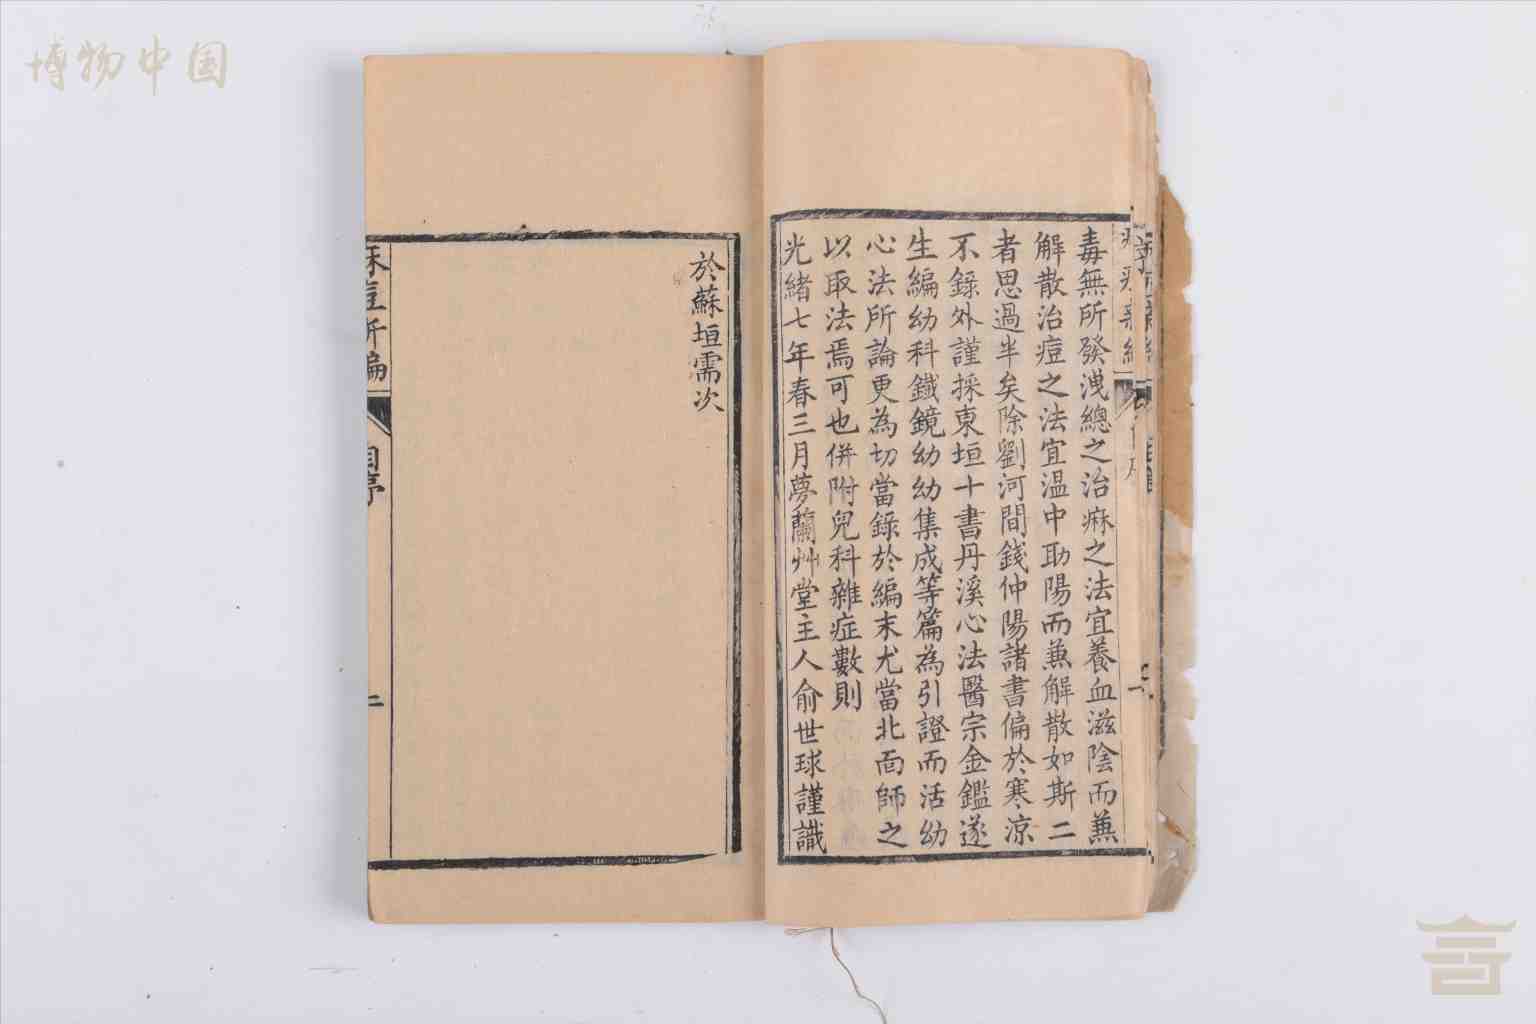 博物中国
毒無所發洩總之治麻之法宜養血滋陰而兼
解散治痘之法宜温中助陽而兼解散如斯二
者思過半矣除劉河間錢仲陽諸書偏於寒涼
不錄外謹採東垣十書丹溪心法醫宗金鑑遂
生編幼科鐵鏡幼幼集成等篇為引證而活幼
心法所論更為切當錄於編末尤當北面師之
以取法焉可也併附兒科雜症數則
光緒七年春三月夢蘭艸堂主人俞世球謹識
於蘇垣需次
麻痘新編
自序
二